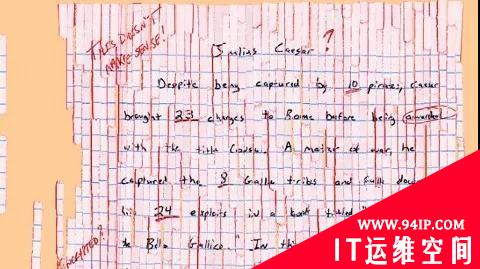 THIS DOESN'T
MAKE SENSE!
Julius Caesar?
Despite being captured by 10 pirates, Caesar
brought 23 charges to Rome before being awarded
with the title Consul. A master of war, he
captured the 8 Gallic tribes and
his 24 exploits in a book titled "
Bello Gallico." In this
WWW.94IP.COM
IT运维空间